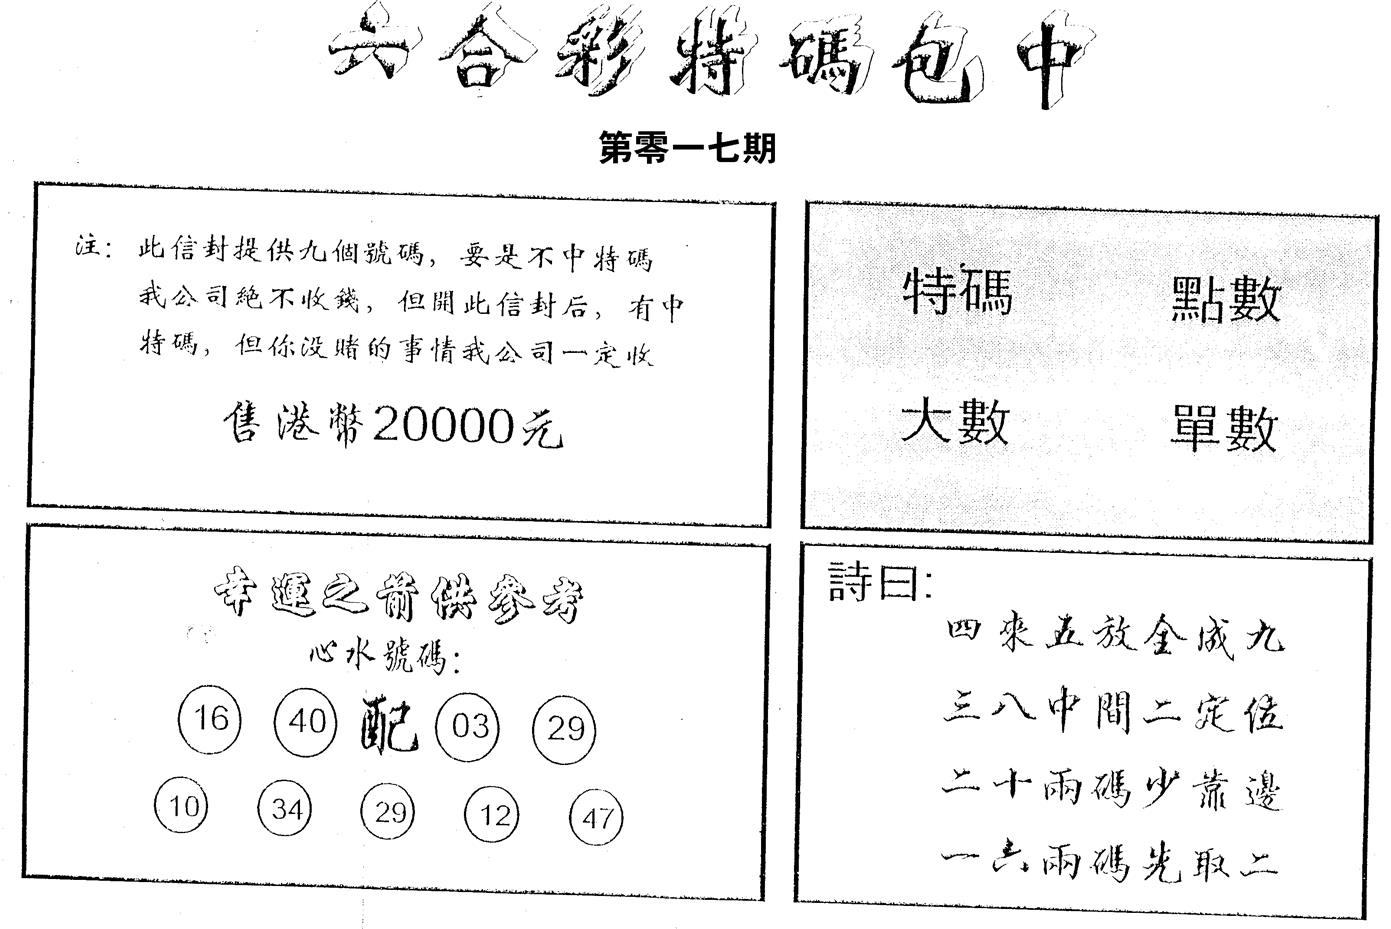 六合彩特碼包中
第零一七期
注：此信封提供九個號碼，要是不中特碼
我公司絕不收錢，但開此信封后，有中
特碼，但你没賭的事情我公司一定收
售港幣20000元
特碼 點數
大數 單數
幸運之箭供參考
心水號碼：
16 40 配 03 29
10 34 29 12 47
詩曰：
四來五放金成九
三八中間二定位
二十兩碼少靠邊
一六兩碼先取二